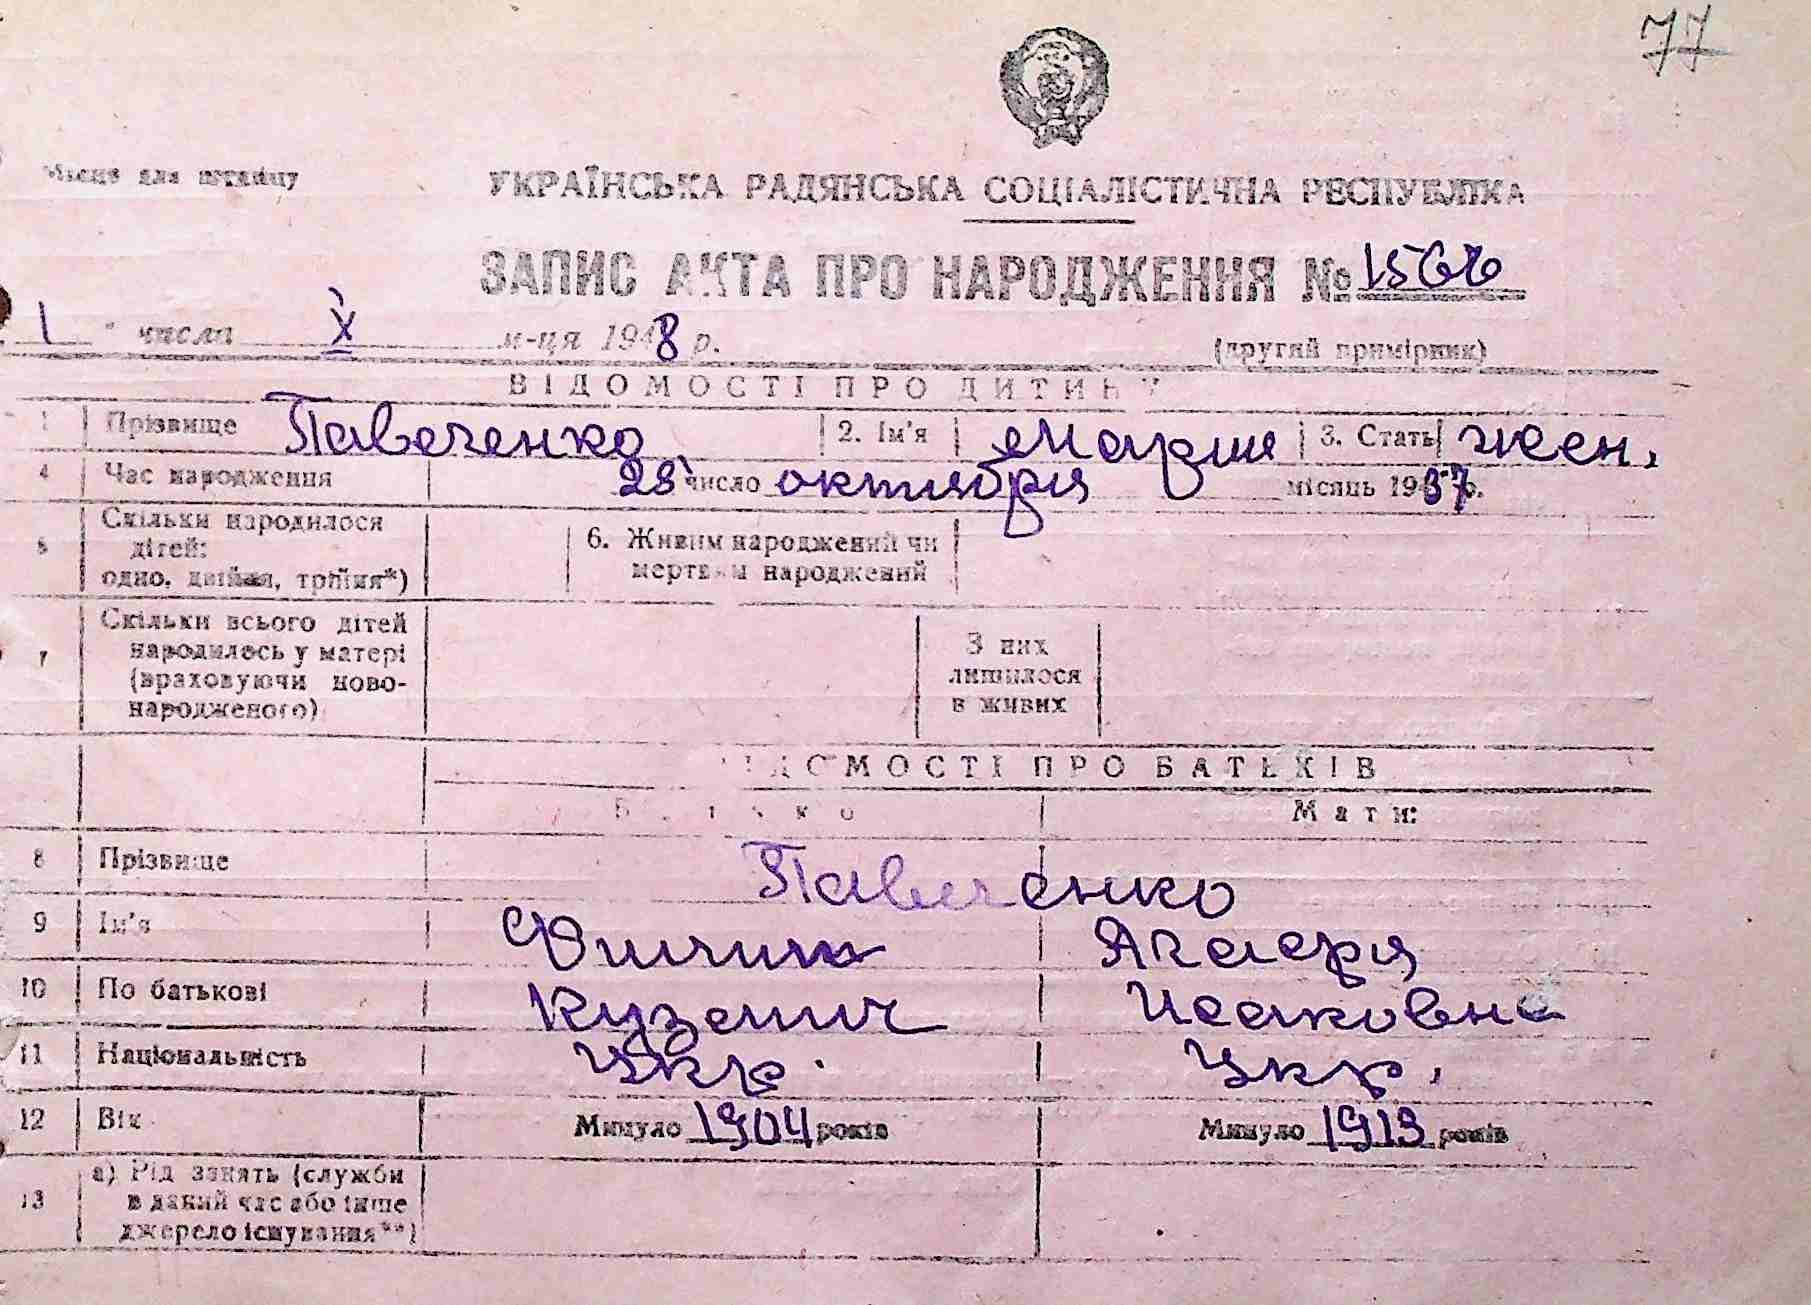 77
Місце для штампу
УКРАЇНСЬКА РАДЯНСЬКА СОЦІАЛІСТИЧНА РЕСПУБЛІКА
ЗАПИС АКТА ПРО НАРОДЖЕННЯ №
1 " числа X м-ця 1948 р.
(другий примірник)
ВІДОМОСТІ ПРО ДИТИНУ
1 Прізвище Павеченко 2. Ім'я Мария 3. Стать жен.
4 Час народження 28 число октября місяць 1937 р.
5 Скільки народилося дітей: одно, двійня, трійня*) 6. Живим народжений чи мертвим народжений
7 Скільки всього дітей народилось у матері (враховуючи ново-народженого) З них лишилося в живих
ВІДОМОСТІ ПРО БАТЬКІВ
Батько Мати:
8 Прізвище Павеченко
9 Ім'я Филипп Агафія
10 По батькові Кузьмич Исаковна
11 Національність Укр. Укр.
12 Вік Минуло 1904 років Минуло 1913 років
13 а) Рід занять (служби в даний час або інше джерело існування**)